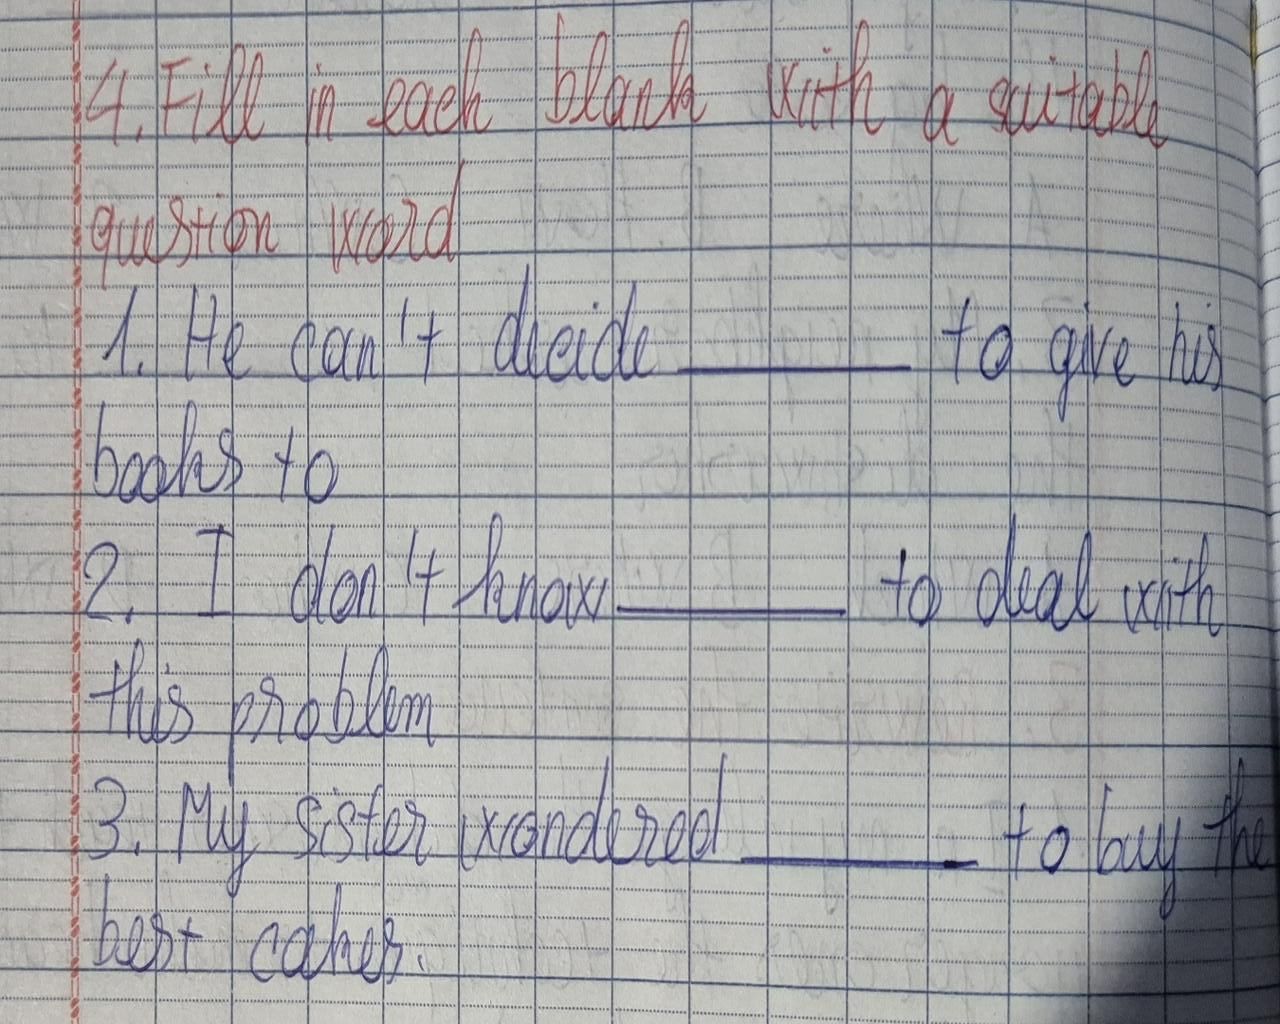 4. Fill in each blank with a suitable
question word
1. He can't decide ________ to give his
books to
2. I don't know ________ to deal with
this problem
3. My sister wondered ________ to buy the
best cakes.